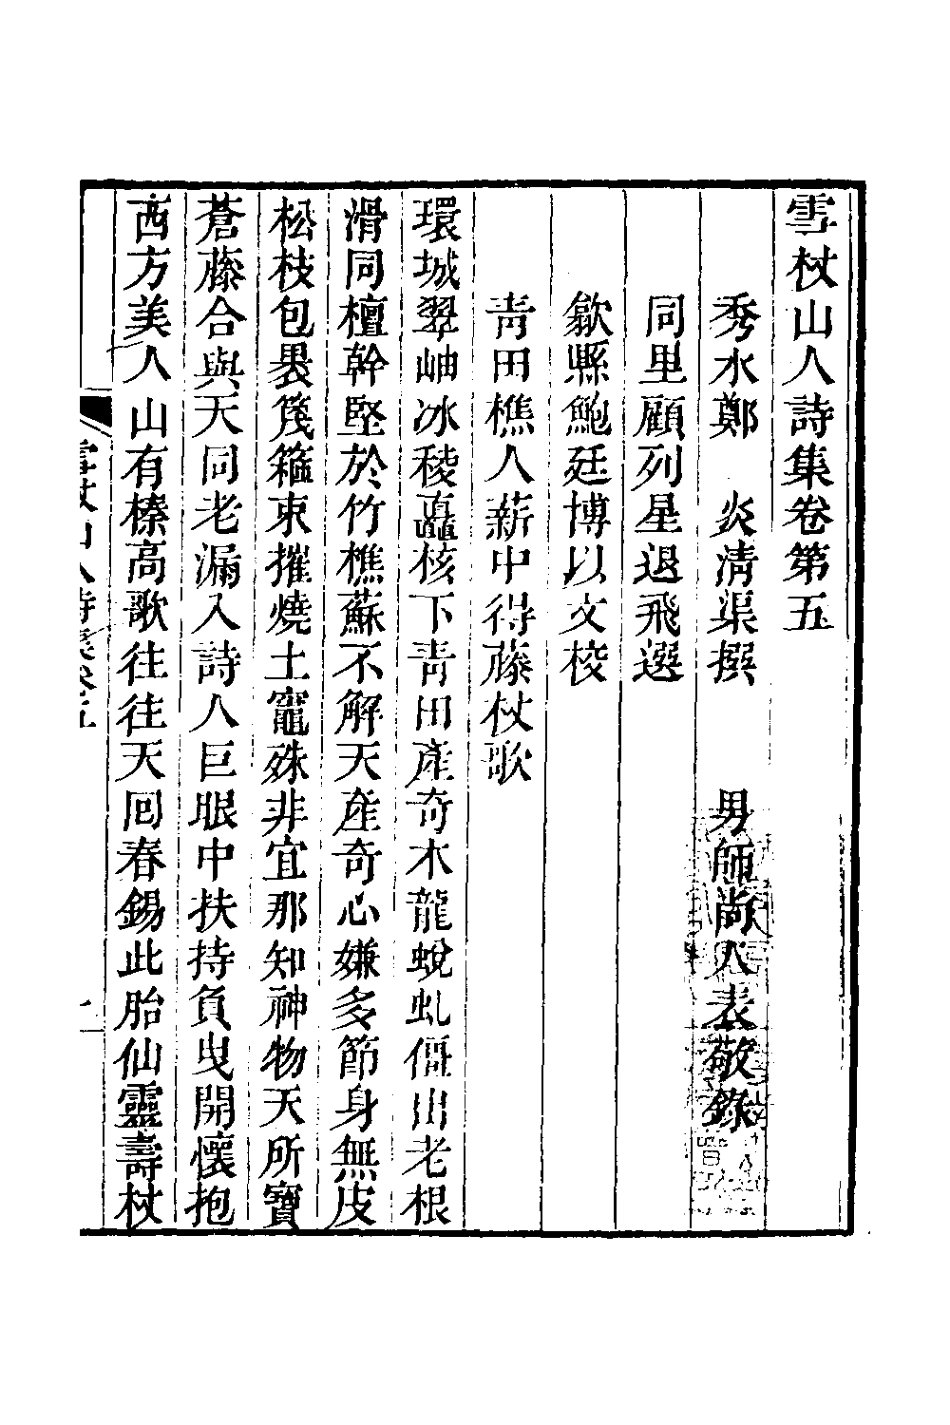 雪杖山人詩集卷第五
秀水鄭　炎清渠撰　男師尚人表敬錄
同里顧列星退飛選
歙縣鮑廷博以文校
青田樵人薪中得藤杖歌
環城翠岫冰稜矗核下青田產奇木龍蛻虬僵出老根
滑同檀幹堅於竹樵蘇不解天產奇心嫌多節身無皮
松枝包裹篾箍束摧燒土竈殊非宜那知神物天所寶
蒼藤合與天同老漏入詩人巨眼中扶持負曳開懷抱
西方美人山有榛高歌往往天回春錫此胎仙靈壽杖
雪杖山人詩集卷五
一